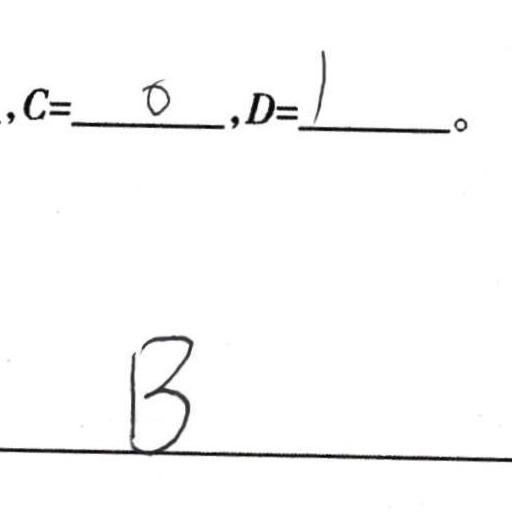 ,C= 0 ,D= 1 。
B